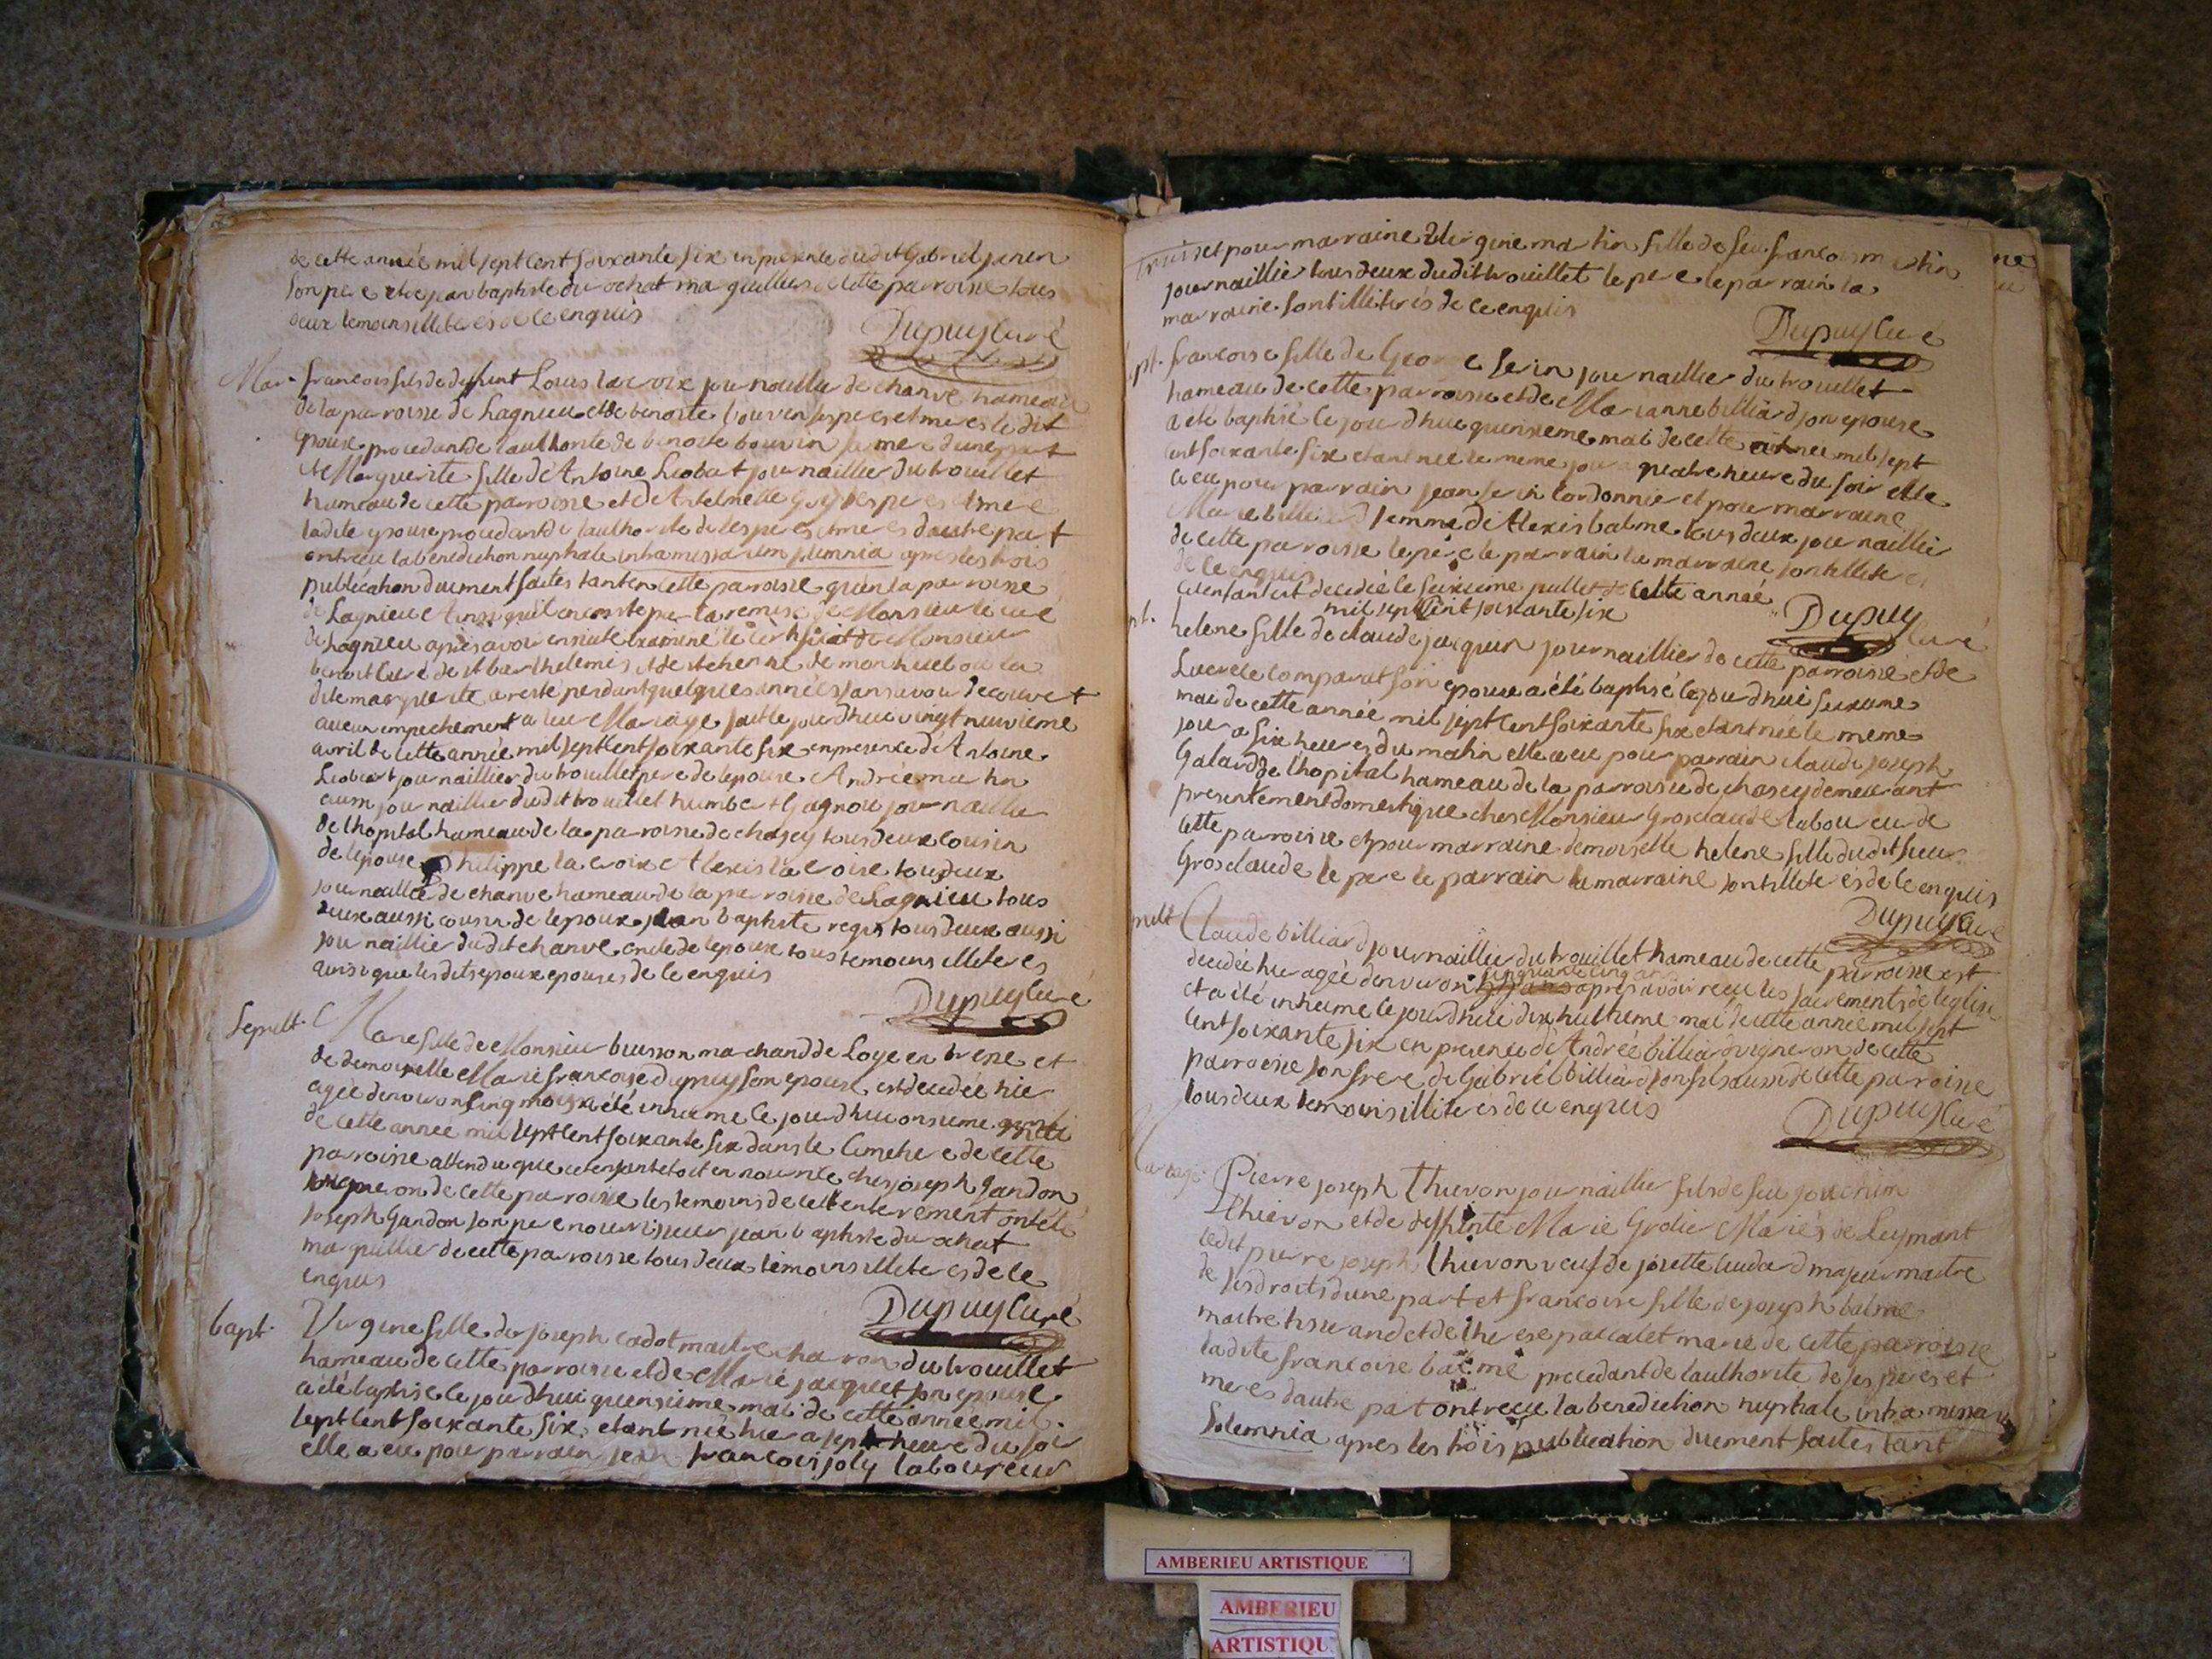 de cette année mil sept cent soixante six en presence dudit Gabriel janin
son pere et de jean baptiste du rochat marguillier de cette parroisse tous
deux temoins illiterés de ce enquis
Dupuy Curé
Mar. francois fils de deffunt Louis lacroix journaillier de chanve hameau
de la parroisse de Lagnieu et de benoite bouvin ses pere et mere le dit
epoux procedant de l'authorité de benoite bouvin sa mere d'une part
et Marguerite fille de Antoine Liobart journaillier du trouillet
hameau de cette parroisse et de Antelmette Guy ses pere et mere
ladite epouse procedant de l'authorité de ses pere et mere d'autre part
ont reçu la benediction nuptiale intra missarum solemnia apres les trois
publication duement faites tant en cette parroisse qu'en la parroisse
de Lagnieu Ainsi qu'il en conste par la remise de Monsieur le curé
de Lagnieu apres avoir ensuite examiné le certificat de Monsieur
benoit Curé de st barthelemis et de st ethenne de monthuel ou la
dite marguerite a resté pendant quelques années sans avoir decouvert
aucun empechement a leur Mariage fait le jour d'hui vingt neuvieme
avril de cette année mil sept cent soixante six en presence de Antoine
Liobart journaillier du trouillet pere de l'epouse Andrée martin
aussi journaillier dudit trouillet humbert Gagnou journaillier
de l'hopital hameau de la parroisse de chasey tous deux cousin
de l'epouse Philippe la croix Alexis la croix tous deux
journaillé de chanve hameau de la parroisse de Lagnieu tous
deux aussi cousin de l'epoux jean baptiste regis tous deux aussi
journaillier dudit chanve oncle de l'epoux tous temoins illiterés
ainsi que lesdits epoux epouses de ce enquis
Dupuy Curé
Sepult. Marie fille de Monsieur buisson marchand de Loye en bresse et
de demoiselle Marie francoise dupuy son epouse est decedée hier
agée d'environ sinq mois a été inhumé le jour d'hui onsieme mai
de cette année mil sept cent soixante six dans le Cimetiere de cette
parroisse attendu que cet enfant etoit en nourrice chez joseph Gandon
vigneron de cette parroisse les temoins de cet enterrement ont été
joseph Gandon son pere nourrisseur jean baptiste du rochat
marguillier de cette parroisse tous deux temoins illiterés de ce
enquis
Dupuy Curé
bapt. Virgine fille de joseph cadot maitre charon du trouillet
hameau de cette parroisse et de Marie jacquet son epouse
a été baptisé le jour d'hui quinsieme mai de cette année mil
sept cent soixante six etant née hier a sept heure du soir
elle a eu pour parrain jean francois joly laboureur
Truiset pour marraine Virgine martin fille de feu francois martin
journaillier tous deux dudit trouillet le pere le parrain la
marraine sont illiterés de ce enquis
Dupuy Curé
pt. francoise fille de George serin journaillier du trouillet
hameau de cette parroisse et de Marianne billiard son epouse
a été baptisé le jour d'hui quinsieme mai de cette année mil sept
cent soixante six etant née le meme jour a quatre heure du soir elle
a eu pour parrain jean serin cordonnier et pour marraine
Marie billiard femme de Alexis balme tous deux journaillier
de cette parroisse le pere le parrain la marraine sont illiterés
de ce enquis
cet enfant est decedé le seixieme juillet de cette année
mil sept Cent soixante six
Dupuy Curé
pt. helene fille de claude jacquin journaillier de cette parroisse et de
Lucrece comparat son epouse a été baptisé le jour d'hui seixieme
mai de cette année mil sept cent soixante six etant née le meme
jour a six heures du matin elle a eu pour parrain claude joseph
Galard de l'hopital hameau de la parroisse de chasey demeurant
presentement domestique chez Monsieur Grosclaude laboureur de
cette parroisse et pour marraine demoiselle helene fille dudit sieur
Grosclaude le pere le parrain la marraine sont illiterés de ce enquis
Dupuy Curé
pult Claude billiard journaillier du trouillet hameau de cette parroisse est
decedé hier agée d'environ cinquante cinq ans apres avoir reçu les sacrements de l'eglise
et a été inhumé le jour d'hui dix huitieme mai de cette année mil sept
cent soixante six en presence de Andrée billiard vigneron de cette
parroisse son frere de Gabriel billiard son fils aussi de cette parroisse
tous deux temoins illiterés de ce enquis
Dupuy Curé
Mariage Pierre joseph Thievon journaillier fils de feu joachim
Thievon et de deffunte Marie Grolier Mariés de Leymant
ledit pierre joseph thievon veuf de josette ludard majeur maitre
de ses droits d'une part et francoise fille de joseph balme
maitre tisserand et de therese pascalet marié de cette parroisse
ladite francoise balme procedant de l'authorité de ses peres et
meres d'autre part ont reçu la benediction nuptiale intra missarum
solemnia apres les trois publication duement faites tant
AMBERIEU ARTISTIQUE
AMBERIEU
ARTISTIQU